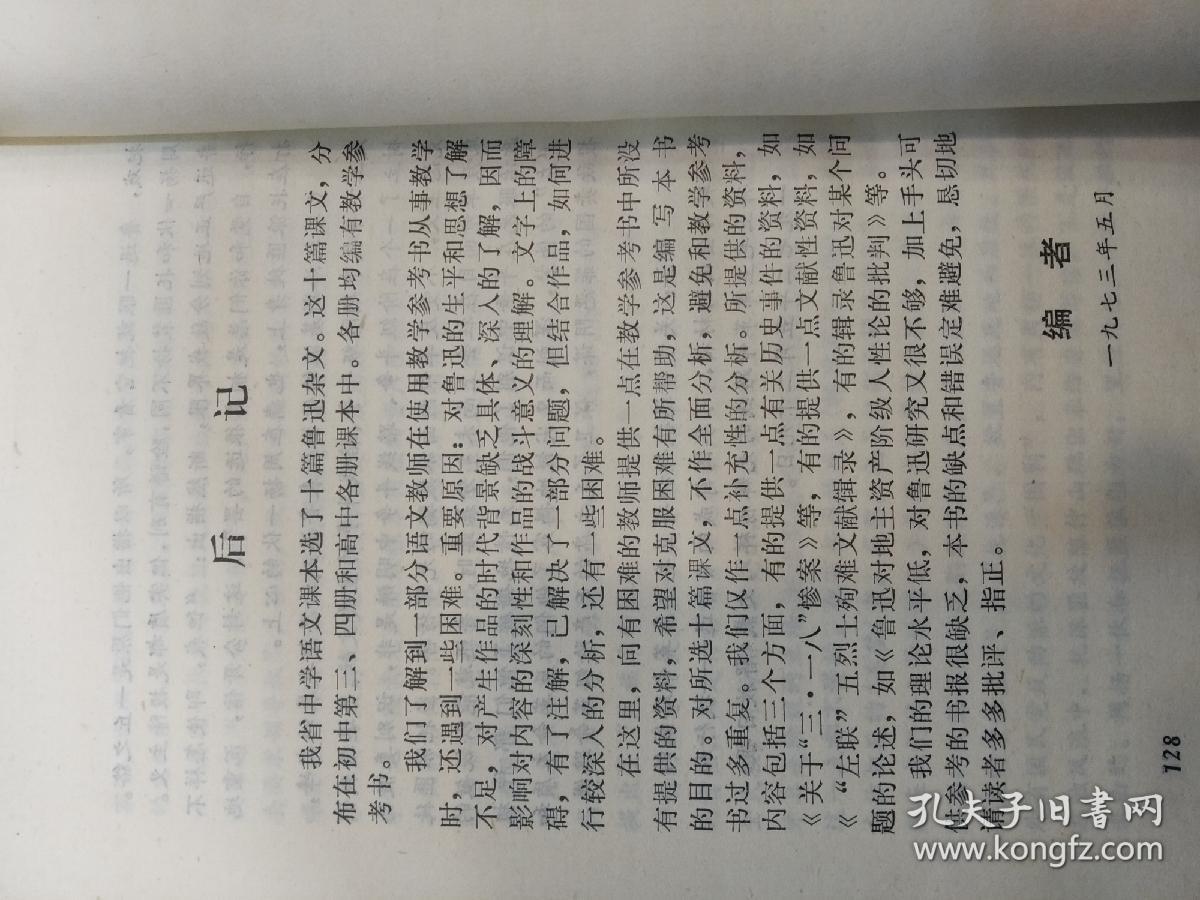 后记
我省中学语文课本选了十篇鲁迅杂文。这十篇课文，分
布在初中第三、四册和高中各册课本中。各册均编有教学参
考书。
我们了解到一部分语文教师在使用教学参考书从事教学
时，还遇到一些困难。重要原因：对鲁迅的生平和思想了解
不足，对产生作品的时代背景缺乏具体、深入的了解，因而
影响对内容的深刻性和作品的战斗意义的理解。文字上的障
碍，有了注解，已解决了一部分问题，但结合作品，如何进
行较深入的分析，还有一些困难。
在这里，向有困难的教师提供一点在教学参考书中所没
有提供的资料，希望对克服困难有所帮助，这是编写本书
的目的。对所选十篇课文，不作全面分析，避免和教学参考
书过多重复。我们仅作一点补充性的分析。所提供的资料，
内容包括三个方面，有的提供一点有关历史事件的资料，如
《关于“三·一八”惨案》等，有的提供一点文献性资料，如
《“左联”五烈士殉难文献辑录》，有的辑录鲁迅对某个问
题的论述，如《鲁迅对地主资产阶级人性论的批判》等。
我们的理论水平低，对鲁迅研究又很不够，加上手头可
供参考的书报很缺乏，本书的缺点和错误定难避免，恳切地
请读者多多批评、指正。
编者
一九七三年五月
128
孔夫子旧书网
www.kongfz.com